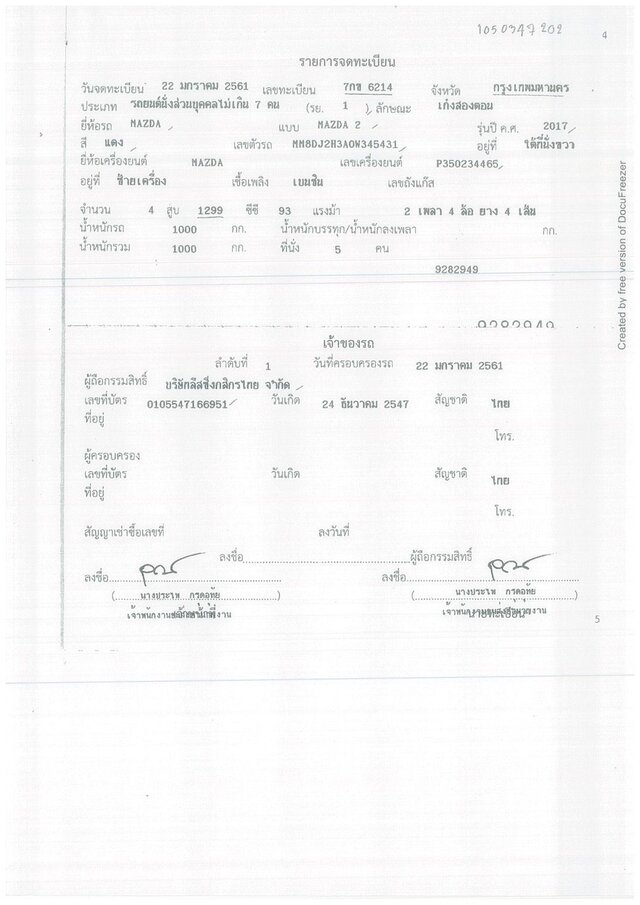 1050347202
4
รายการจดทะเบียน
วันจดทะเบียน 22 มกราคม 2561 เลขทะเบียน 7กข 6214 จังหวัด กรุงเทพมหานคร
ประเภท รถยนต์นั่งส่วนบุคคลไม่เกิน 7 คน (รย. 1 ) ลักษณะ เก๋งสองตอน
ยี่ห้อรถ MAZDA แบบ MAZDA 2 รุ่นปี ค.ศ. 2017
สี แดง เลขตัวรถ MM8DJ2H3A0W345431 อยู่ที่ ใต้ที่นั่งขวา
ยี่ห้อเครื่องยนต์ MAZDA เลขเครื่องยนต์ P350234465
อยู่ที่ ซ้ายเครื่อง เชื้อเพลิง เบนซิน เลขถังแก๊ส
จำนวน 4 สูบ 1299 ซีซี 93 แรงม้า 2 เพลา 4 ล้อ ยาง 4 เส้น
น้ำหนักรถ 1000 กก. น้ำหนักบรรทุก/น้ำหนักลงเพลา กก.
น้ำหนักรวม 1000 กก. ที่นั่ง 5 คน
9282949
9282949
เจ้าของรถ
ลำดับที่ 1 วันที่ครอบครองรถ 22 มกราคม 2561
ผู้ถือกรรมสิทธิ์ บริษัทลีสซิ่งกสิกรไทย จำกัด
เลขที่บัตร 0105547166951 วันเกิด 24 ธันวาคม 2547 สัญชาติ ไทย
ที่อยู่
โทร.
ผู้ครอบครอง
เลขที่บัตร วันเกิด สัญชาติ ไทย
ที่อยู่
โทร.
สัญญาเช่าซื้อเลขที่ ลงวันที่
ลงชื่อ ผู้ถือกรรมสิทธิ์
ลงชื่อ ลงชื่อ
( นางประไพ กรดอุทัย ) ( นางประไพ กรดอุทัย )
5
Created by free version of DocuFreezer